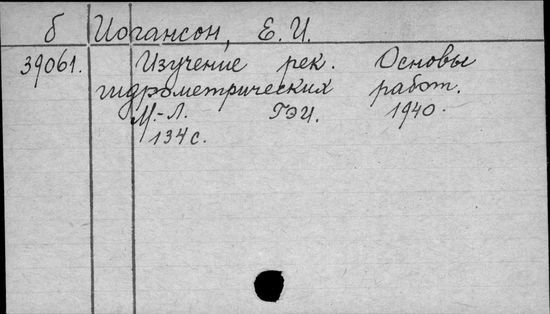 б Иогансон, Е. И.
39061. Изучение рек. Основы
гидрометрических работ.
М.-Л. ГЭИ. 1940.
134 с.